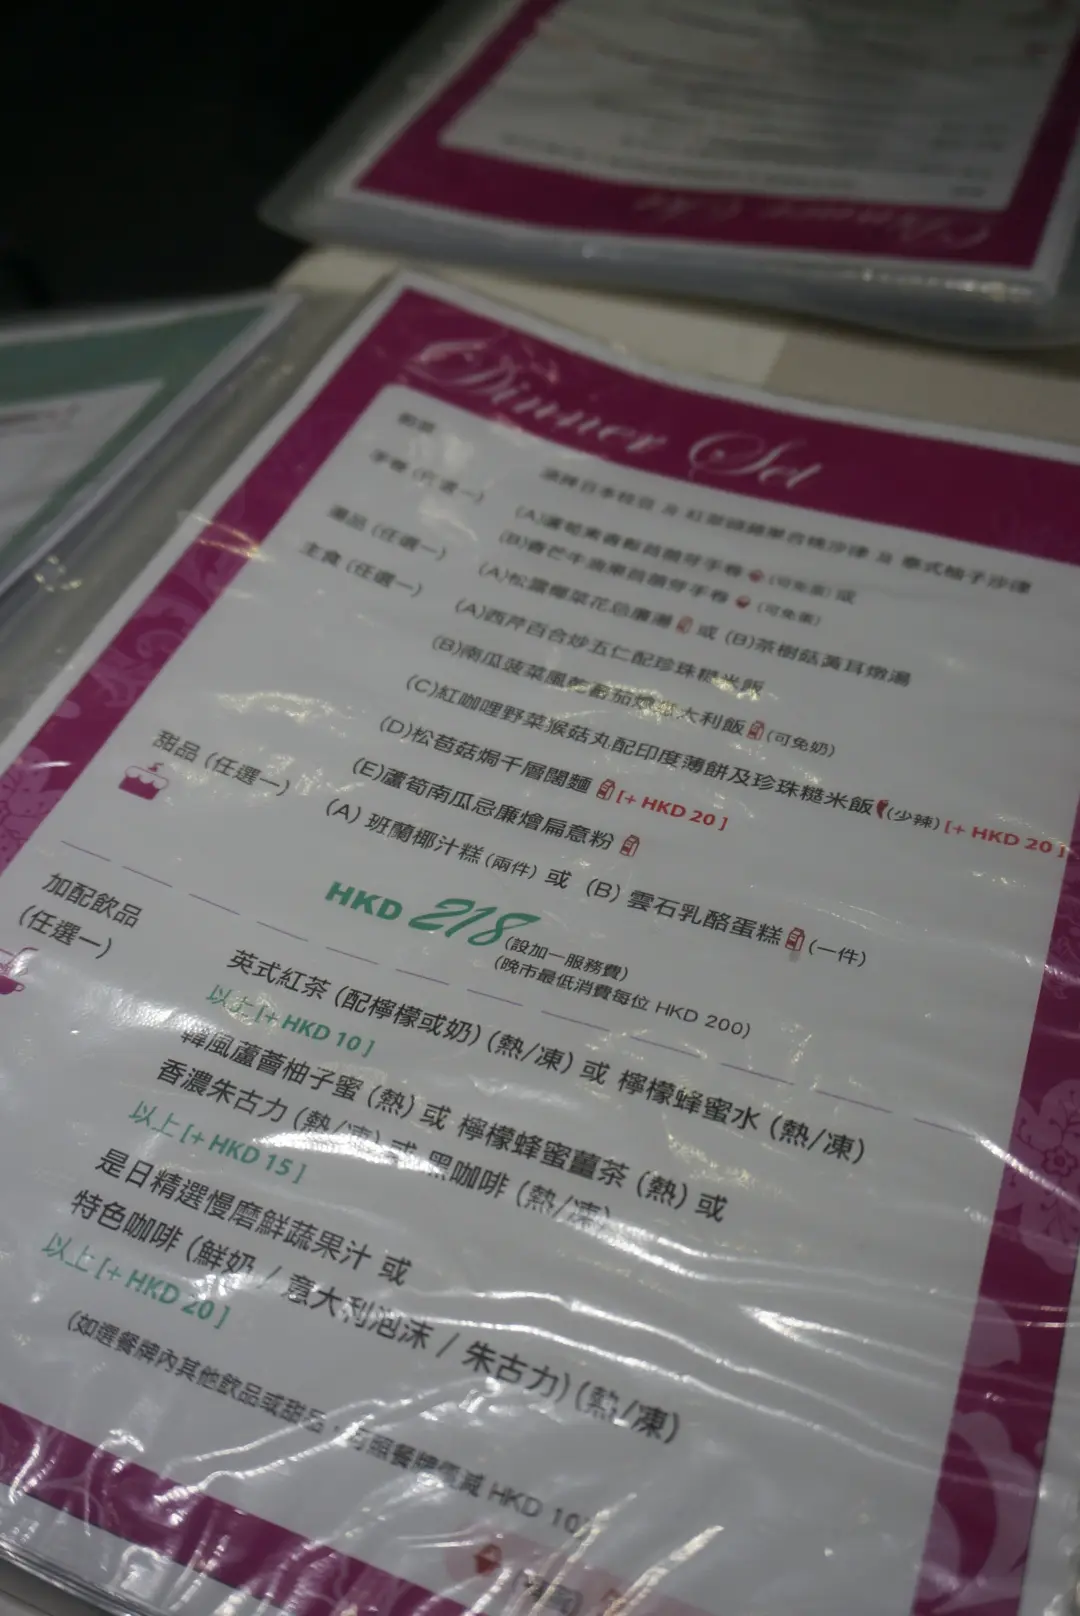 Dinner Set
前菜
涼拌日本枝豆 及 紅菜頭蘋果合桃沙律 及 泰式柚子沙律
手卷 (任選一)
(A)蘆筍素香鬆苜蓿芽手卷 (可免蛋) 或
(B)香芒牛油果苜蓿芽手卷 (可免蛋)
湯品 (任選一)
(A)松露椰菜花忌廉湯 或 (B)茶樹菇黃耳燉湯
主食 (任選一)
(A)西芹百合炒五仁配珍珠糙米飯
(B)南瓜菠菜風乾番茄燴意大利飯 (可免奶)
(C)紅咖哩野菜猴菇丸配印度薄餅及珍珠糙米飯 (少辣) [+ HKD 20 ]
(D)松茸菇焗千層闊麵 [+ HKD 20 ]
(E)蘆筍南瓜忌廉燴扁意粉
甜品 (任選一)
(A) 班蘭椰汁糕 (兩件) 或 (B) 雲石乳酪蛋糕 (一件)
HKD 218 (設加一服務費)
(晚市最低消費每位 HKD 200)
加配飲品
(任選一)
英式紅茶 (配檸檬或奶) (熱/凍) 或 檸檬蜂蜜水 (熱/凍)
以上 [+ HKD 10 ]
韓風蘆薈柚子蜜 (熱) 或 檸檬蜂蜜薑茶 (熱) 或
香濃朱古力 (熱/凍) 或 黑咖啡 (熱/凍)
以上 [+ HKD 15 ]
是日精選慢磨鮮蔬果汁 或
特色咖啡 (鮮奶 / 意大利泡沫 / 朱古力) (熱/凍)
以上 [+ HKD 20 ]
(如選餐牌內其他飲品或甜品，可照餐牌價減 HKD 10)
Dinner Set